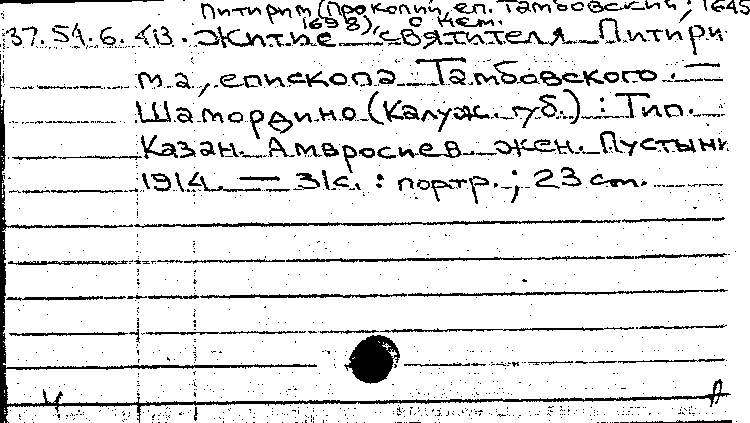 Питирим (Прокопий, еп. Тамбовский; 1645
1698), о нем.
37.54.6.413. Житие святителя Питири
ма, епископа Тамбовского. —
Шамордино (Калуж. губ.) : Тип.
Казан. Амвросиев. жен. Пустыни
1914. — 31с. : портр. ; 23 cm.